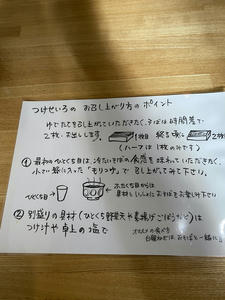 つけせいろのお召し上がり方のポイント
ゆでたてを召し上がっていただきたく、そばは時間差で
2枚、お出しします。 1枚目 終わる頃に 2枚目
(ハーフは1枚のみです)
① 最初のひとくち目は、冷たいそばの食感を味わっていただきたく、
小さい器に入った"もりつゆ"で召し上がってみて下さい。
ひとくち目
ふたくち目からは
具材といっしょにおそばをお楽しみ下さい
② 別盛りの具材(ひとくち野菜天や素揚げごぼうなど)は
つけ汁や卓上の塩で
オススメの食べ方
白髪ねぎは、おそばと一緒に